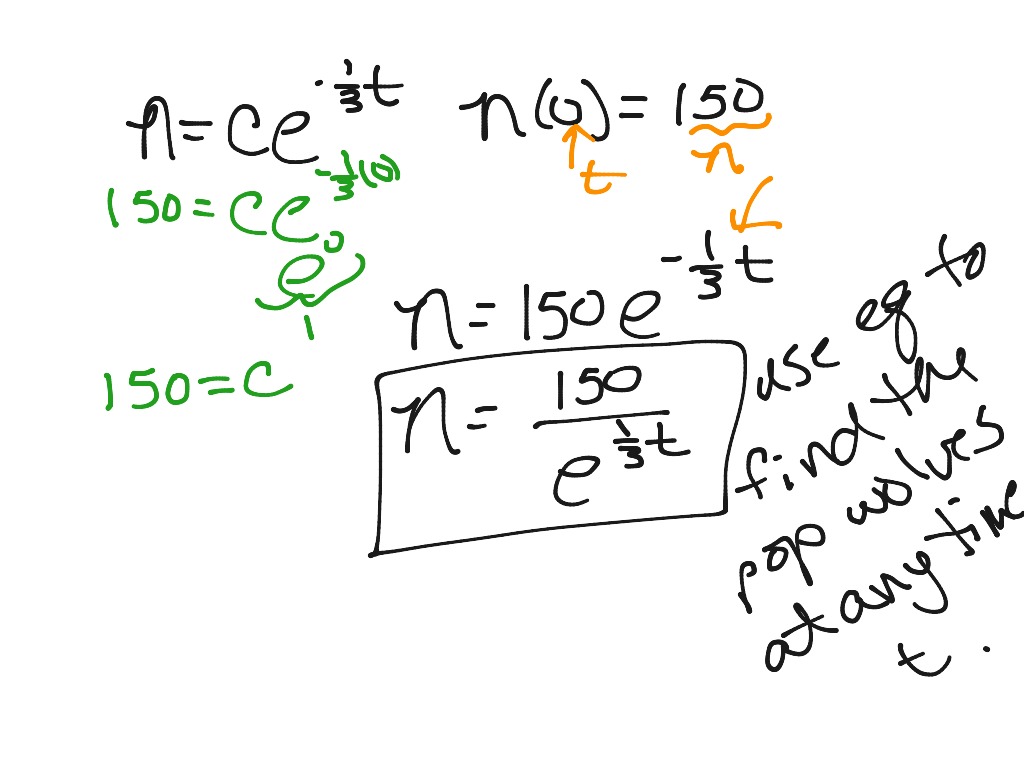 n = ce^{-\frac{1}{3}t}
n(0) = 150
t
n
150 = ce^{-\frac{1}{3}(0)}
e^0
1
150 = c
n = 150e^{-\frac{1}{3}t}
n = \frac{150}{e^{\frac{1}{3}t}}
use eq to
find the
pop wolves
at any time
t.